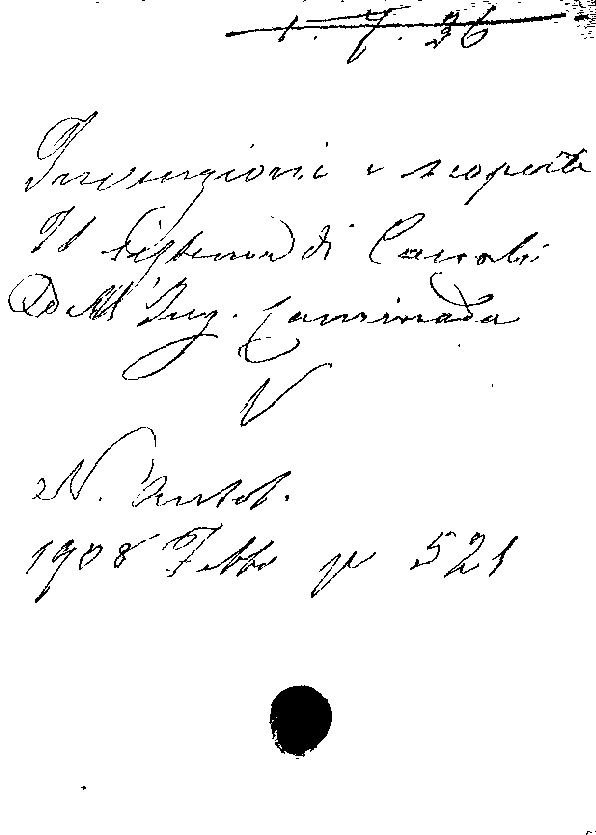 1. 7. 36
Invenzioni e scoperte
Il Sistema di Canali
Dell'Ing. Caminada
V
N. Antol.
1908 Febb. p 521